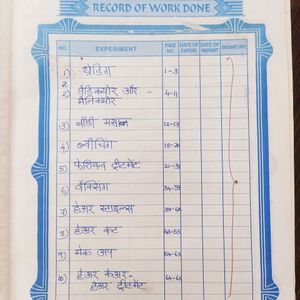 RECORD OF WORK DONE
NO. EXPERIMENT PAGE NO. DATE OF EXPER. DATE OF REPORT SIGNATURE
1) थ्रेडिंग 1-3
2) पेडिक्योर और - मेनिक्योर 4-11
3) बॉडी मसाज 12-17
4) ब्लीचिंग 18-20
5) फेशियल ट्रीटमेंट 21-
6) वैक्सिंग 34-
7) हेअर स्टाइल्स
8) हेअर कट 48-53
9) मेक अप 54-63
10) हेअर केअर-
हेअर ट्रीटमेंट 64-